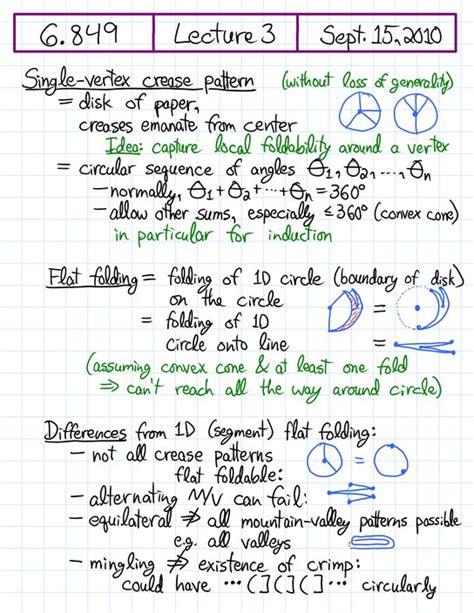 6.849 Lecture 3 Sept. 15, 2010
Single-vertex crease pattern (without loss of generality)
= disk of paper,
creases emanate from center
Idea: capture local foldability around a vertex
= circular sequence of angles Θ₁, Θ₂, ..., Θₙ
– normally, Θ₁ + Θ₂ + ... + Θₙ = 360°
– allow other sums, especially ≤ 360° (convex cone)
in particular for induction
Flat folding = folding of 1D circle (boundary of disk)
on the circle
= folding of 1D
circle onto line
(assuming convex cone & at least one fold
⇒ can't reach all the way around circle)
Differences from 1D (segment) flat folding:
– not all crease patterns
flat foldable:
– alternating M/V can fail:
– equilateral ⇏ all mountain-valley patterns possible
e.g. all valleys
– mingling ⇏ existence of crimp:
could have ...(](](]... circularly